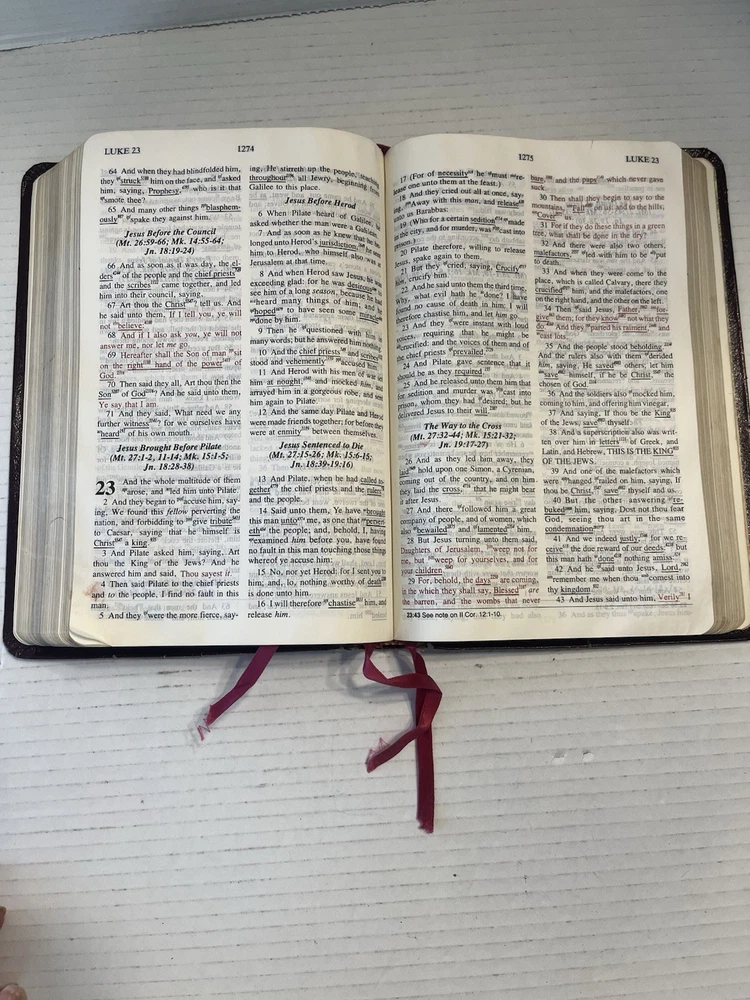 LUKE 23
1274
64 And when they had blindfolded him,
they struck him on the face, and asked
him, saying, Prophesy, who is it that
smote thee?
65 And many other things blasphem-
ously spake they against him.
Jesus Before the Council
(Mt. 26:59-66; Mk. 14:55-64;
Jn. 18:19-24)
66 And as soon as it was day, the el-
ders of the people and the chief priests
and the scribes came together, and led
him into their council, saying,
67 Art thou the Christ? tell us. And
he said unto them, If I tell you, ye will
not believe.
68 And if I also ask you, ye will not
answer me, nor let me go.
69 Hereafter shall the Son of man sit
on the right hand of the power of
God.
70 Then said they all, Art thou then the
Son of God? And he said unto them,
Ye say that I am.
71 And they said, What need we any
further witness? for we ourselves have
heard of his own mouth.
Jesus Brought Before Pilate
(Mt. 27:1-2, 11-14; Mk. 15:1-5;
Jn. 18:28-38)
23 And the whole multitude of them
arose, and led him unto Pilate.
2 And they began to accuse him, say-
ing, We found this fellow perverting
the nation, and forbidding to give tribute
to Caesar, saying that he himself is
Christ a king.
3 And Pilate asked him, saying, Art
thou the King of the Jews? And he
answered him and said, Thou sayest it.
4 Then said Pilate to the chief priests
and to the people, I find no fault in this
man.
5 And they were the more fierce, say-
ing, He stirreth up the people, teaching
throughout all Jewry, beginning from
Galilee to this place.
Jesus Before Herod
6 When Pilate heard of Galilee, he
asked whether the man were a Galilean.
7 And as soon as he knew that he be-
longed unto Herod's jurisdiction, he sent
him to Herod, who himself also was at
Jerusalem at that time.
8 And when Herod saw Jesus, he was
exceeding glad: for he was desirous to
see him of a long season, because he had
heard many things of him; and he
hoped to have seen some miracle
done by him.
9 Then he questioned with him in
many words; but he answered him nothing.
10 And the chief priests and scribes
stood and vehemently accused him.
11 And Herod with his men of war set
him at nought, and mocked him, and
arrayed him in a gorgeous robe, and sent
him again to Pilate.
12 And the same day Pilate and Herod
were made friends together; for before they
were at enmity between themselves.
Jesus Sentenced to Die
(Mt. 27:15-26; Mk. 15:6-15;
Jn. 18:39-19:16)
13 And Pilate, when he had called to-
gether the chief priests and the rulers
and the people,
14 Said unto them, Ye have brought
this man unto me, as one that pervert-
eth the people; and, behold, I, having
examined him before you, have found
no fault in this man touching those things
whereof ye accuse him:
15 No, nor yet Herod: for I sent you to
him; and, lo, nothing worthy of death
is done unto him.
16 I will therefore chastise him, and
release him.
1275
LUKE 23
17 (For of necessity he must re-
lease one unto them at the feast.)
18 And they cried out all at once, say-
ing, Away with this man, and release
unto us Barabbas:
19 (Who for a certain sedition made
in the city, and for murder, was cast into
prison.)
20 Pilate therefore, willing to release
Jesus, spake again to them.
21 But they cried, saying, Crucify
him, crucify him.
22 And he said unto them the third time,
Why, what evil hath he done? I have
found no cause of death in him. I will
therefore chastise him, and let him go.
23 And they were instant with loud
voices, requiring that he might be
crucified: and the voices of them and of
the chief priests prevailed.
24 And Pilate gave sentence that it
should be as they required.
25 And he released unto them him that
for sedition and murder was cast into
prison, whom they had desired; but he
delivered Jesus to their will.
The Way to the Cross
(Mt. 27:32-44; Mk. 15:21-32;
Jn. 19:17-27)
26 And as they led him away, they
laid hold upon one Simon, a Cyrenian,
coming out of the country, and on him
they laid the cross, that he might bear
it after Jesus.
27 And there followed him a great
company of people, and of women, which
also bewailed and lamented him.
28 But Jesus turning unto them said,
Daughters of Jerusalem, weep not for
me, but weep for yourselves, and for
your children.
29 For, behold, the days are coming,
in the which they shall say, Blessed are
the barren, and the wombs that never
23:43 See note on II Cor. 12:1-10.
bare, and the paps which never gave
suck.
30 Then shall they begin to say to the
mountains, Fall on us; and to the hills,
Cover us.
31 For if they do these things in a green
tree, what shall be done in the dry?
32 And there were also two others,
malefactors, led with him to be put
to death.
33 And when they were come to the
place, which is called Calvary, there they
crucified him, and the malefactors, one
on the right hand, and the other on the left.
34 Then said Jesus, Father, for-
give them; for they know not what they
do. And they parted his raiment, and
cast lots.
35 And the people stood beholding.
And the rulers also with them derided
him, saying, He saved others; let him
save himself, if he be Christ, the
chosen of God.
36 And the soldiers also mocked him,
coming to him, and offering him vinegar,
37 And saying, If thou be the King
of the Jews, save thyself.
38 And a superscription also was writ-
ten over him in letters of Greek, and
Latin, and Hebrew, THIS IS THE KING
OF THE JEWS.
39 And one of the malefactors which
were hanged railed on him, saying, If
thou be Christ, save thyself and us.
40 But the other answering re-
buked him, saying, Dost not thou fear
God, seeing thou art in the same
condemnation?
41 And we indeed justly; for we re-
ceive the due reward of our deeds: but
this man hath done nothing amiss.
42 And he said unto Jesus, Lord,
remember me when thou comest into
thy kingdom.
43 And Jesus said unto him, Verily I